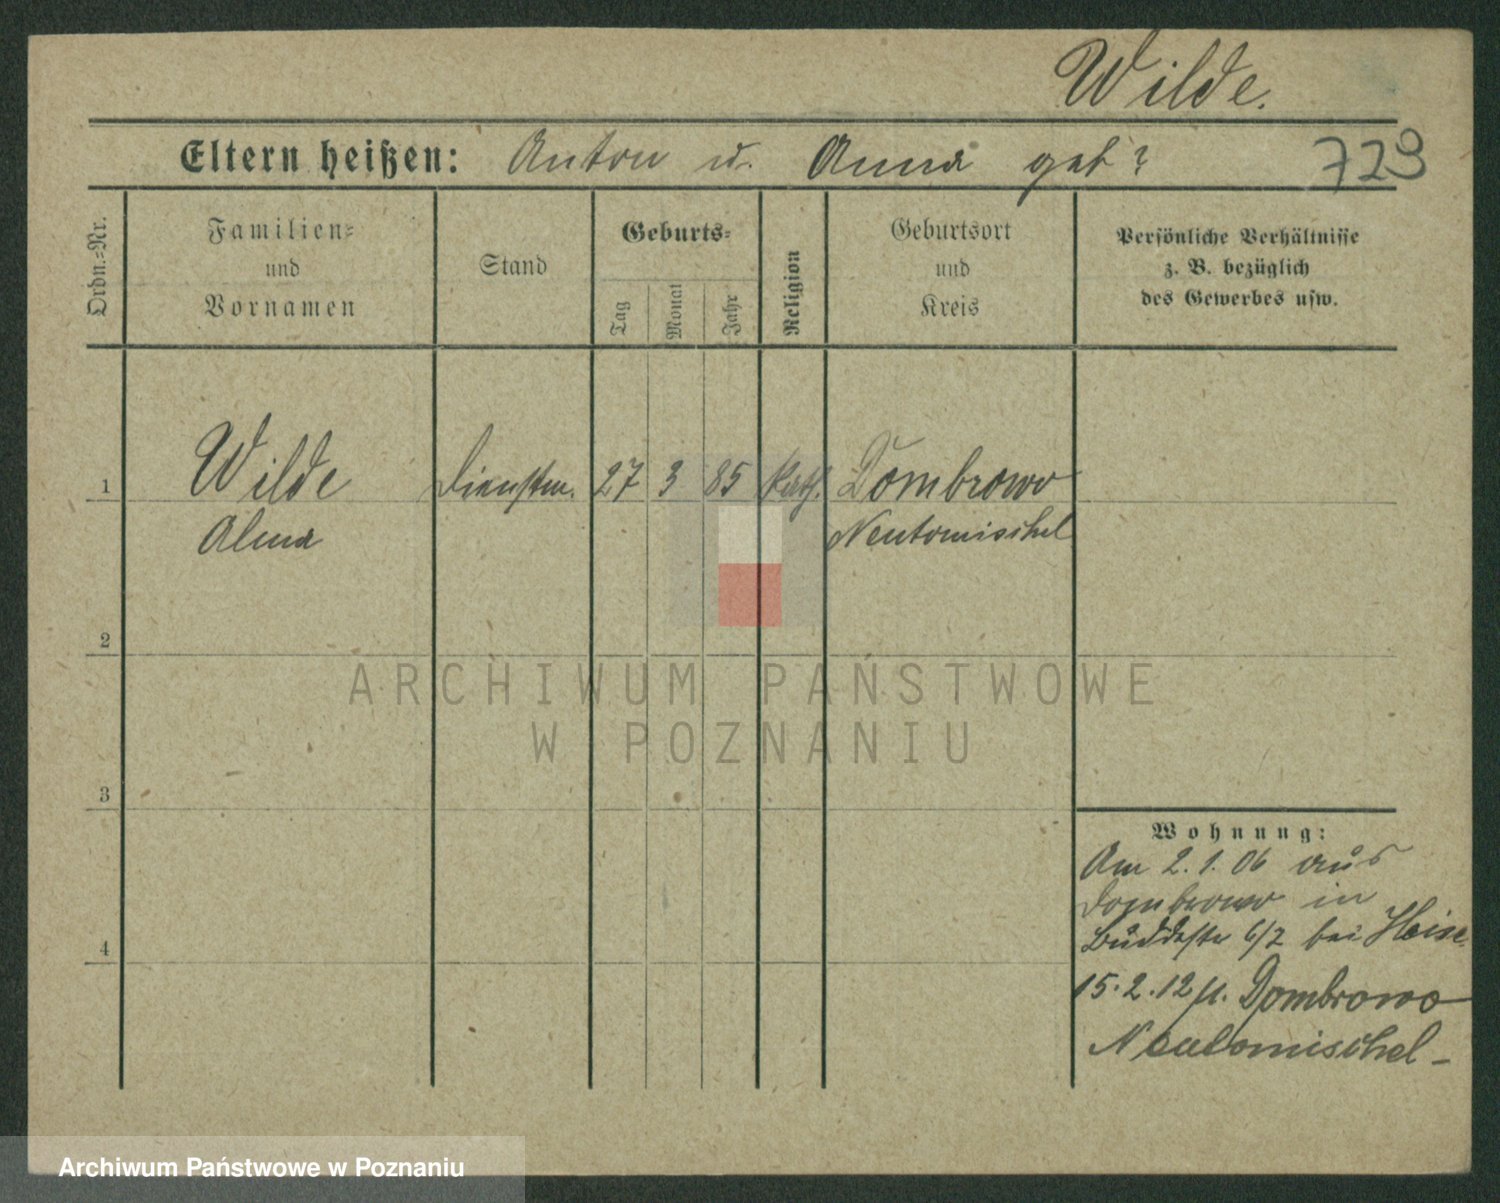 Wilde.
Eltern heißen: Anton u. Anna geb?
729
Ordn.=Nr.
Familien=
und
Vornamen
Stand
Geburts=
Tag
Monat
Jahr
Religion
Geburtsort
und
Kreis
Persönliche Verhältnisse
z. B. bezüglich
des Gewerbes usw.
1
Wilde
Alma
Dienstm.
27
3
85
Kath.
Dombrowo
Neutomischel
2
3
4
Wohnung:
Am 2. 1. 06 aus
Dombrowo in
Buddestr 6/7 bei Heise
15. 2. 12 Dombrowo
Neutomischel -
ARCHIWUM PAŃSTWOWE
W POZNANIU
Archiwum Państwowe w Poznaniu